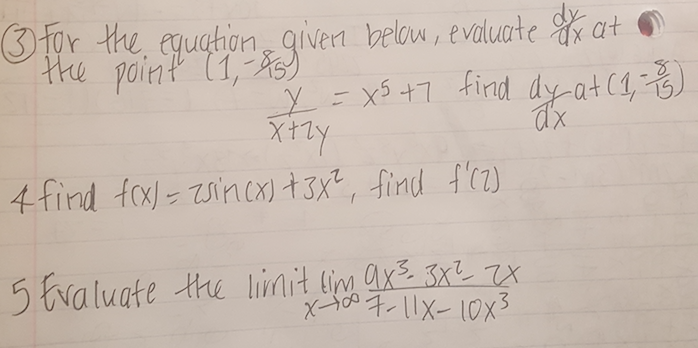 ③ For the equation given below, evaluate dy/dx at
the point (1, -8/15)
y/(x+2y) = x⁵ + 7 find dy/dx at (1, -8/15)
4 find f(x) = 2sin(x) + 3x², find f'(2)
5 Evaluate the limit lim x→∞ (9x³ - 3x² - 2x)/(7 - 11x - 10x³)